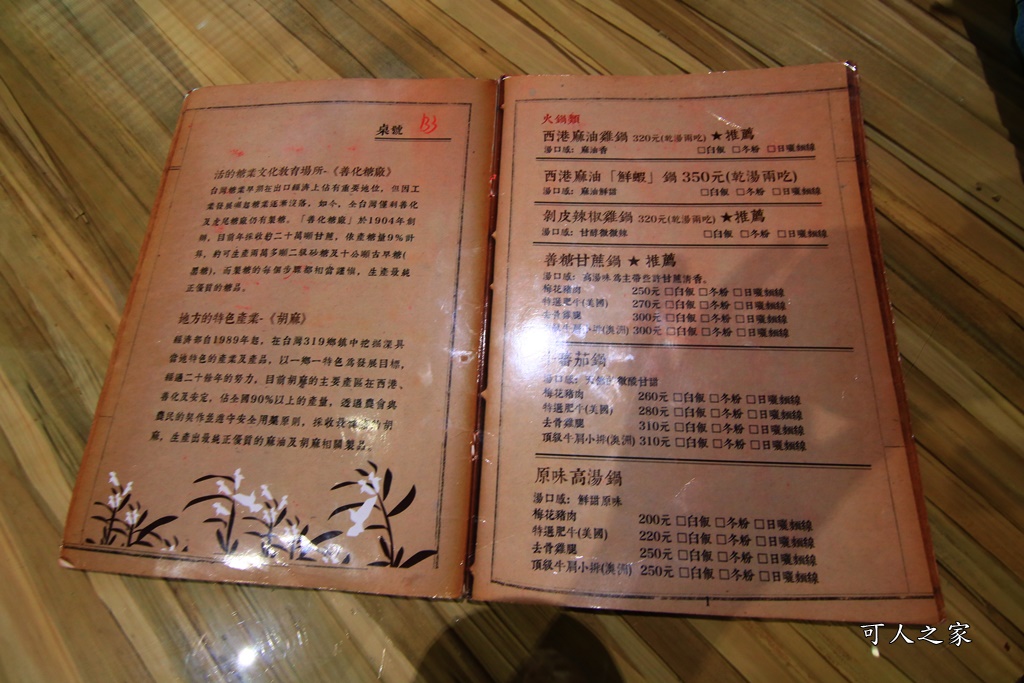 桌號 B3
活的糖業文化教育場所-《善化糖廠》
台灣糖業早期在出口經濟上佔有重要地位，但因工
業發展導致糖業逐漸沒落，如今，全台灣僅剩善化
及虎尾糖廠仍有製糖。「善化糖廠」於1904年創
辦，目前年採收約二十萬噸甘蔗，依產糖量9%計
算，約可生產兩萬多噸二級砂糖及十公噸古早糖(
黑糖)。而製糖的每個步驟都相當謹慎，生產最純
正優質的糖品。
地方的特色產業-《胡麻》
經濟部自1989年起，在台灣319鄉鎮中挖掘深具
當地特色的產業及產品，以一鄉一特色為發展目標，
經過二十餘年的努力，目前胡麻的主要產區在西港、
善化及安定，佔全國90%以上的產量，透過農會與
農民的契作並遵守安全用藥原則，採收最 的胡
麻，生產出最純正優質的麻油及胡麻相關製品。
火鍋類
西港麻油雞鍋 320元(乾湯兩吃) ★推薦
湯口感：麻油香 □白飯 □冬粉 □日曬麵線
西港麻油「鮮蝦」鍋 350元(乾湯兩吃)
湯口感：麻油鮮甜 □白飯 □冬粉 □日曬麵線
剝皮辣椒雞鍋 320元(乾湯兩吃) ★推薦
湯口感：甘醇微微辣 □白飯 □冬粉 □日曬麵線
善糖甘蔗鍋 ★ 推薦
湯口感：高湯味為主帶些許甘蔗清香。
梅花豬肉 250元 □白飯 □冬粉 □日曬麵線
特選肥牛(美國) 270元 □白飯 □冬粉 □日曬麵線
去骨雞腿 300元 □白飯 □冬粉 □日曬麵線
頂級牛肩小排(澳洲) 300元 □白飯 □冬粉 □日曬麵線
牛蕃茄鍋
湯口感： 微酸甘甜
梅花豬肉 260元 □白飯 □冬粉 □日曬麵線
特選肥牛(美國) 280元 □白飯 □冬粉 □日曬麵線
去骨雞腿 310元 □白飯 □冬粉 □日曬麵線
頂級牛肩小排(澳洲) 310元 □白飯 □冬粉 □日曬麵線
原味高湯鍋
湯口感：鮮甜原味
梅花豬肉 200元 □白飯 □冬粉 □日曬麵線
特選肥牛(美國) 220元 □白飯 □冬粉 □日曬麵線
去骨雞腿 250元 □白飯 □冬粉 □日曬麵線
頂級牛肩小排(澳洲) 250元 □白飯 □冬粉 □日曬麵線
1
可人之家